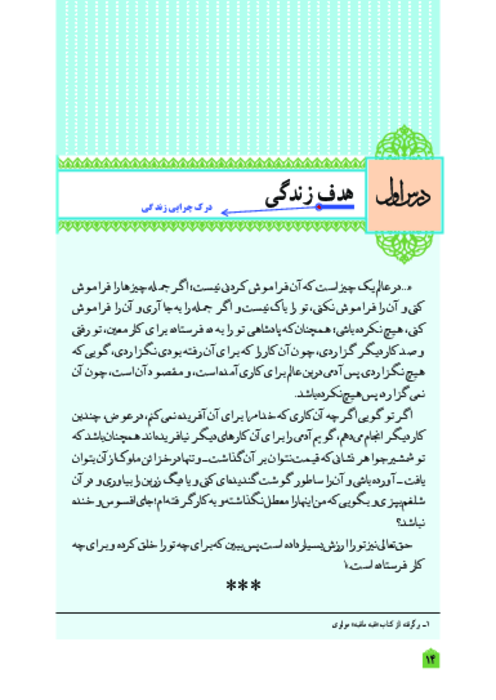 درس اول
هدف زندگی
درک چرایی زندگی
«..در عالم یک چیز است که آن فراموش کردنی نیست؛ اگر جمله چیزها را فراموش
کنی و آن را فراموش نکنی، تو را باک نیست و اگر جمله را به جا آری و آن را فراموش
کنی، هیچ نکرده باشی؛ همچنان که پادشاهی تو را به ده فرستاد برای کار معین، تو رفتی
و صد کار دیگر گزاردی، چون آن کار را که برای آن رفته بودی نگزاردی، گویی که
هیچ نگزاردی پس آدمی در این عالم برای کاری آمده است، و مقصود آن است، چون آن
نمی گزارد، پس هیچ نکرده باشد.
اگر تو گویی اگر چه آن کاری که خدا مرا برای آن آفریده نمی کنم، در عوض، چندین
کار دیگر انجام می دهم، گویم آدمی را برای آن کارهای دیگر نیافریده اند همچنان باشد که
تو شمشیر جواهر نشانی که قیمت نتوان بر آن گذاشت ـ و تنها در خزائن ملوک از آن بتوان
یافت ـ آورده باشی و آن را ساطور گوشت گندیده ای کنی و یا دیگ زرین را بیاوری و در آن
شلغم بپزی و بگویی که من اینها را معطل نگذاشته و به کار گرفته ام! جای افسوس و خنده
نباشد؟
حق تعالی نیز تو را ارزش بسیار داده است پس ببین که برای چه تو را خلق کرده و برای چه
کار فرستاده است.۱
***
۱ـ برگرفته از کتاب «فیه مافیه» مولوی
۱۴